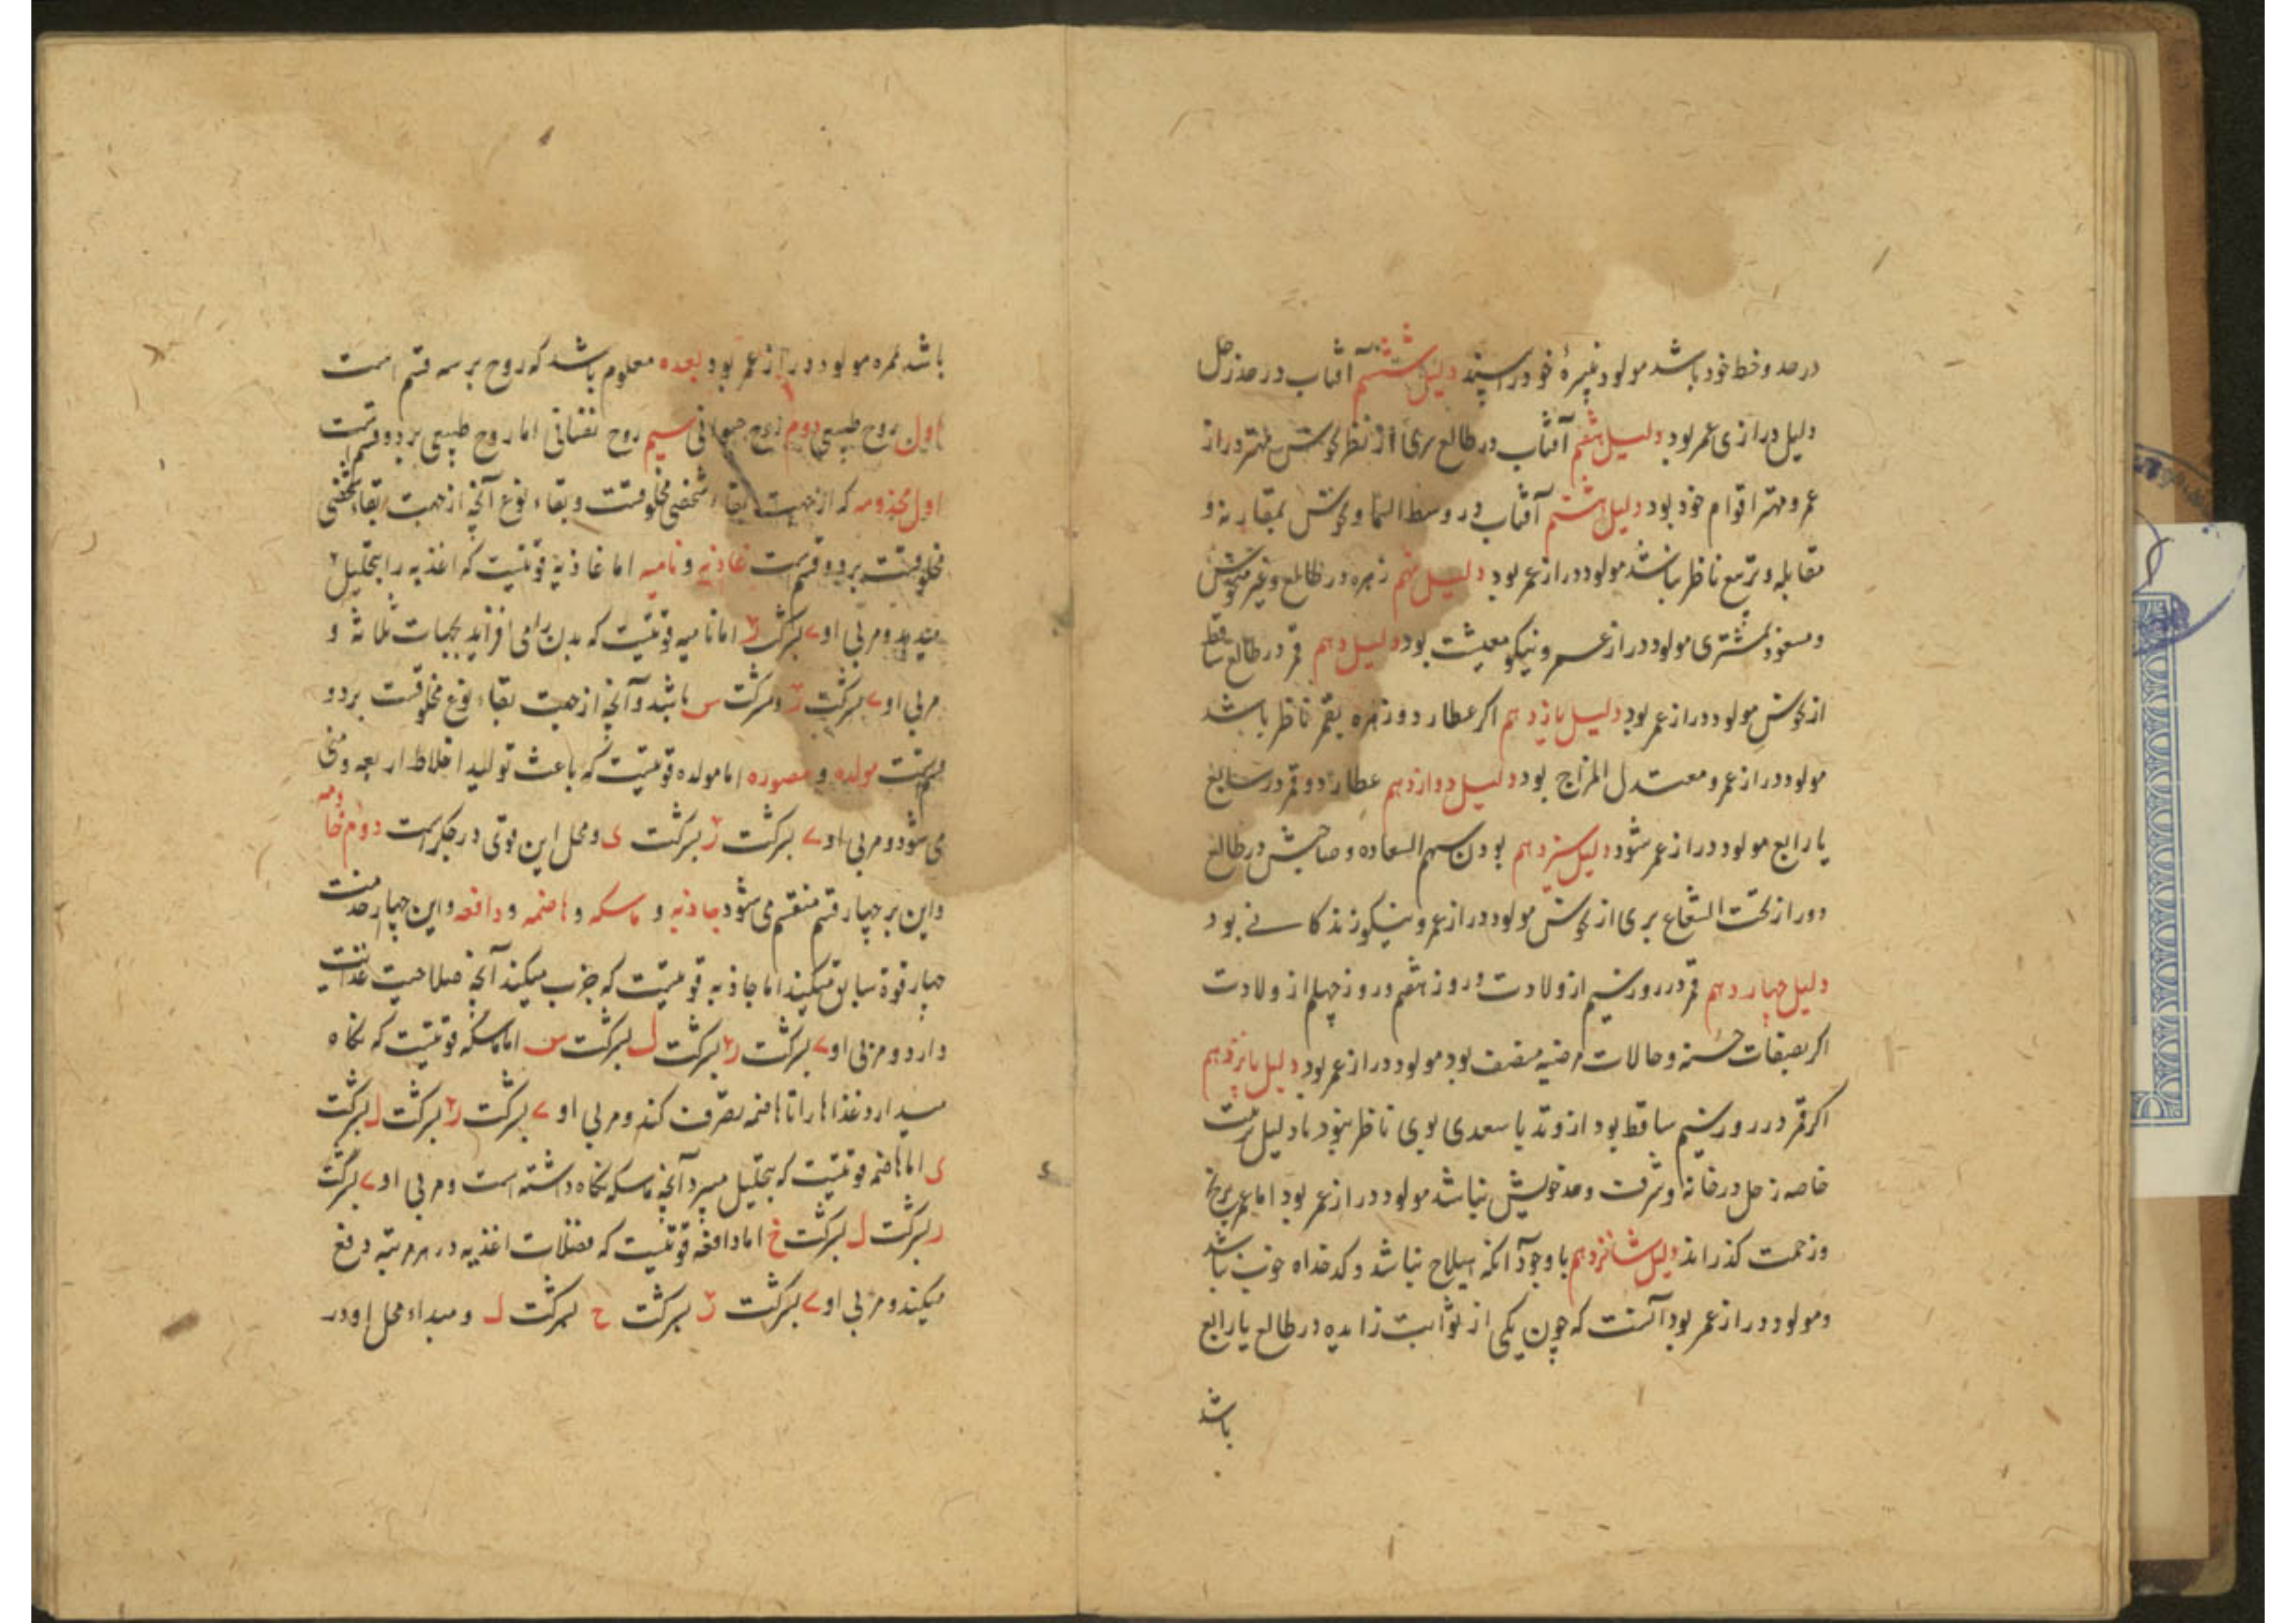 در حد و خط خود باشد مولود نبیرهٔ خود را بیند دلیل ششم آفتاب در حد زحل
دلیل درازی عمر بود دلیل هفتم آفتاب در طالع بری از نظر نحوس مهتر دراز
عمر و مهتر اقوام خود بود دلیل هشتم آفتاب در وسط السما و نحوس بمقارنه و
مقابله و تربیع ناظر نباشد مولود دراز عمر بود دلیل نهم زهره در طالع و غیر منحوس
و مسعود بمشتری مولود دراز عمر و نیکو معیشت بود دلیل دهم قمر در طالع ساقط
از نحوس مولود دراز عمر بود دلیل یازدهم اکر عطارد و زهره بقمر ناظر باشد
مولود دراز عمر و معتدل المزاج بود دلیل دوازدهم عطارد و قمر در سابع
یا رابع مولود دراز عمر شود دلیل سیزدهم بودن سهم السعاده و صاحبش در طالع
دور از تحت الشعاع بری از نحوس مولود دراز عمر و نیکو زندکانی بود
دلیل چهاردهم قمر در روز سیم از ولادت و روز هفتم و روز چهلم از ولادت
اکر بصفات حسنه و حالات مرضیه متصف بود مولود دراز عمر بود دلیل پانزدهم
اکر قمر در روز سیم ساقط بود از وتد یا سعدی بوی ناظر نبود با دلیل
خاصه زحل در خانه و شرف و حد خویش نباشد مولود دراز عمر بود اما عمر برنج
و زحمت کذراند دلیل شانزدهم با وجود آنکه هیلاج نباشد و کدخداه خوب نباشد
و مولود دراز عمر بود آنست که چون یکی از ثوابت زایده در طالع یا رابع
باشد
باشد نمره مولود دراز عمر بود بعده معلوم باشد که روح بر سه قسم است
اول روح طبیعی دوم روح حیوانی سیم روح نفسانی اما روح طبیعی بر دو قسمت
اول مخدومه که از جهت بقاء شخصی مخلوقست و بقاء نوع آنچه از جهت بقاء شخصی
مخلوقست بر دو قسمت غاذیه و نامیه اما غاذیه قوتیست که اغذیه را بتحلیل
میدهد و مربی او ے بشرکت ر اما نامیه قوتیست که بدن را می افزاید بجهات ثلاثه و
مربی او ے بشرکت ر و بشرکت س باشد و آنچه از جهت بقاء نوع مخلوقست بر دو
قسمت مولده و مصوره اما مولده قوتیست که باعث تولید اخلاط اربعه و منی
می شود و مربی او ے بشرکت ر بشرکت ی و محل این قوی در جکر است دوم خادمه
و این بر چهار قسم منقسم می شود جاذبه و ماسکه و هاضمه و دافعه و این چهار خدمت
چهار قوة سابق میکنند اما جاذبه قوتیست که جذب میکند آنچه صلاحیت غذائیت
دارد و مربی او ے بشرکت ر بشرکت ل بشرکت س اما ماسکه قوتیست که نکاه
میدارد غذاها را تا هاضمه تصرف کند و مربی او ے بشرکت ر بشرکت ل بشرکت
ی اما هاضمه قوتیست که بتحلیل میبرد آنچه ماسکه نکاه داشته است و مربی او ے بشرکت
ر بشرکت ل بشرکت خ اما دافعه قوتیست که فضلات اغذیه در هر مرتبه دفع
میکند و مربی او ے بشرکت ر بشرکت ح بشرکت ل و مبداء محل او در